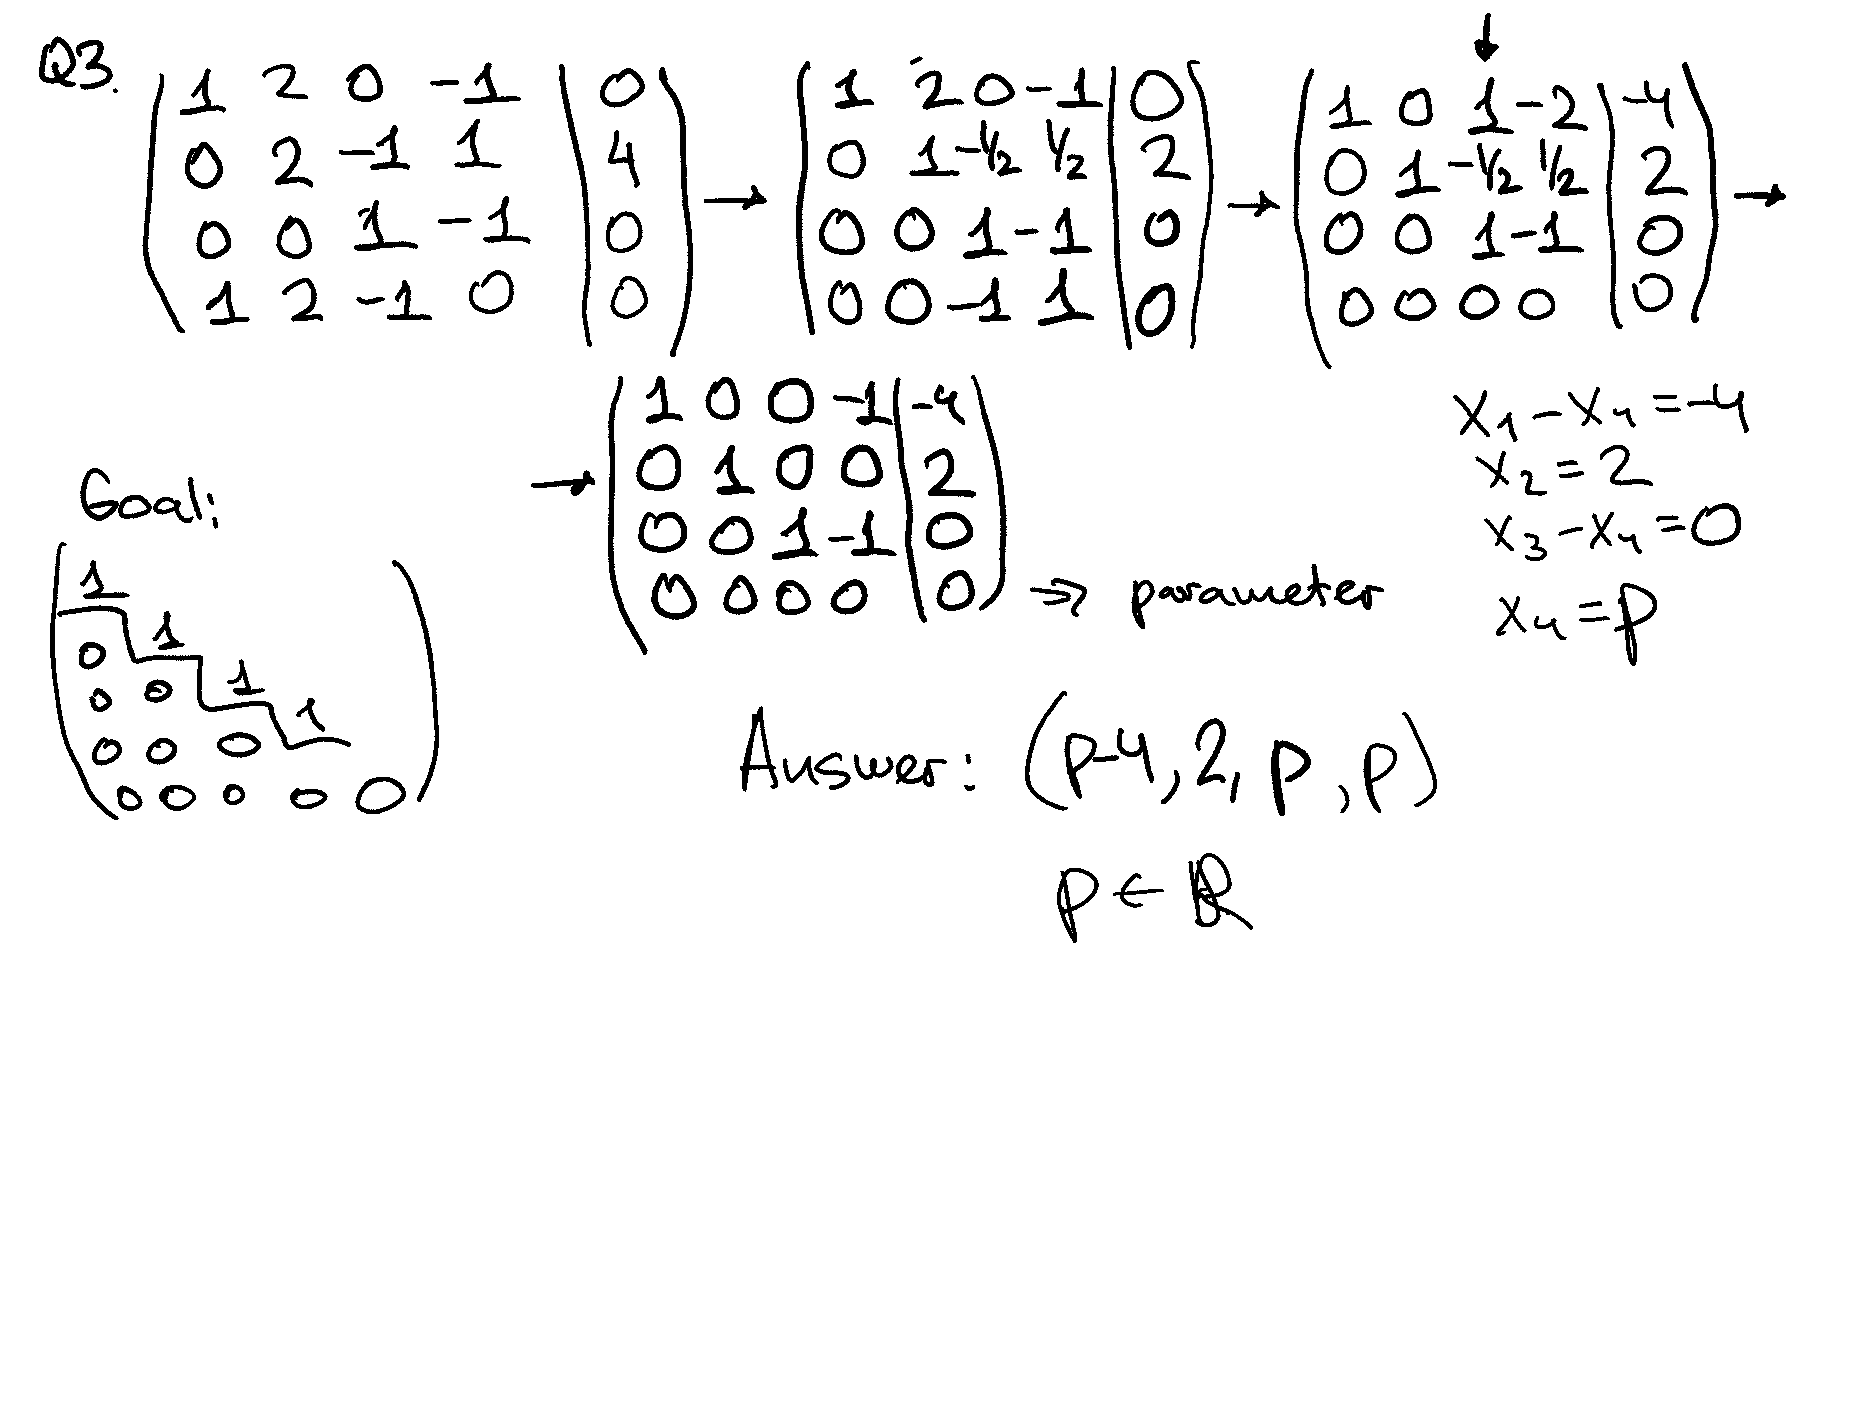 Q3.
1 2 0 -1 | 0 → 1 2 0 -1 | 0 → 1 0 1 -2 | -4 →
0 2 -1 1 | 4 0 1 -1/2 1/2 | 2 0 1 -1/2 1/2 | 2
0 0 1 -1 | 0 0 0 1 -1 | 0 0 0 1 -1 | 0
1 2 -1 0 | 0 0 0 -1 1 | 0 0 0 0 0 | 0
→ 1 0 0 -1 | -4
0 1 0 0 | 2
0 0 1 -1 | 0
0 0 0 0 | 0 ⇒ parameter
x₁ - x₄ = -4
x₂ = 2
x₃ - x₄ = 0
x₄ = p
Goal:
1
0 1
0 0 1
0 0 0 1
0 0 0 0 0
Answer: (p-4, 2, p, p)
p ∈ ℝ